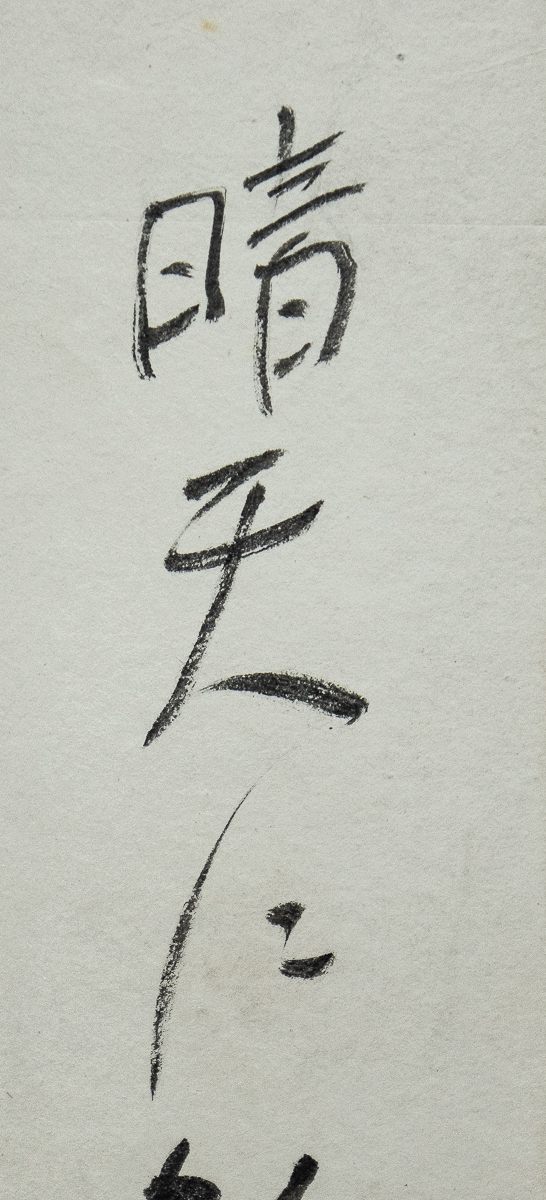 晴天に